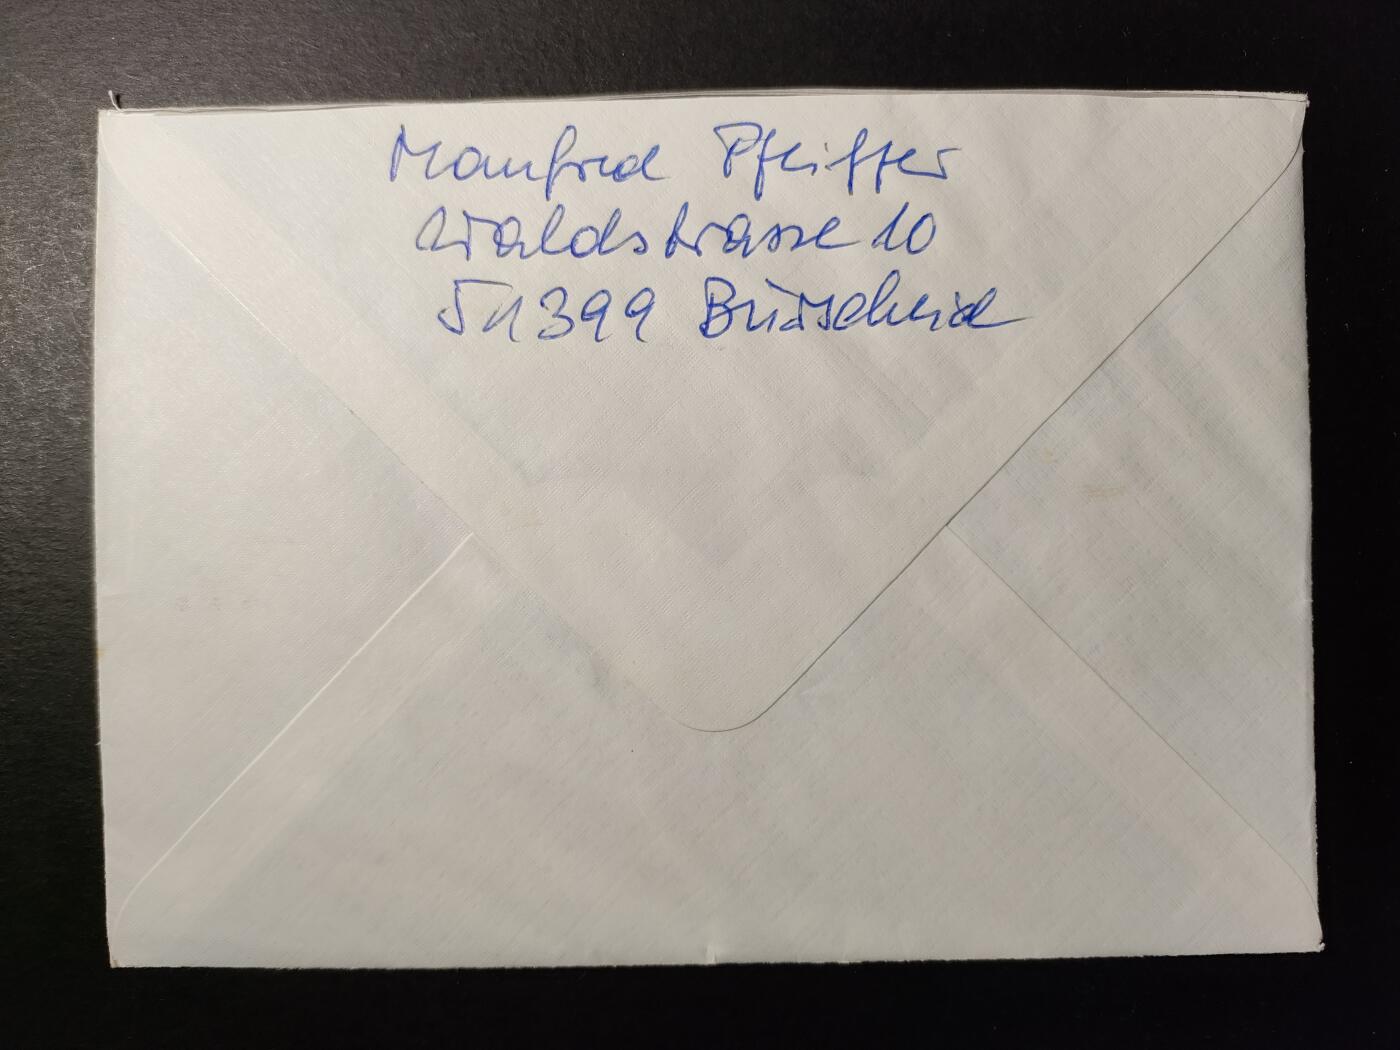 Manfred Pfeiffer
Waldstrasse 10
51399 Burscheid